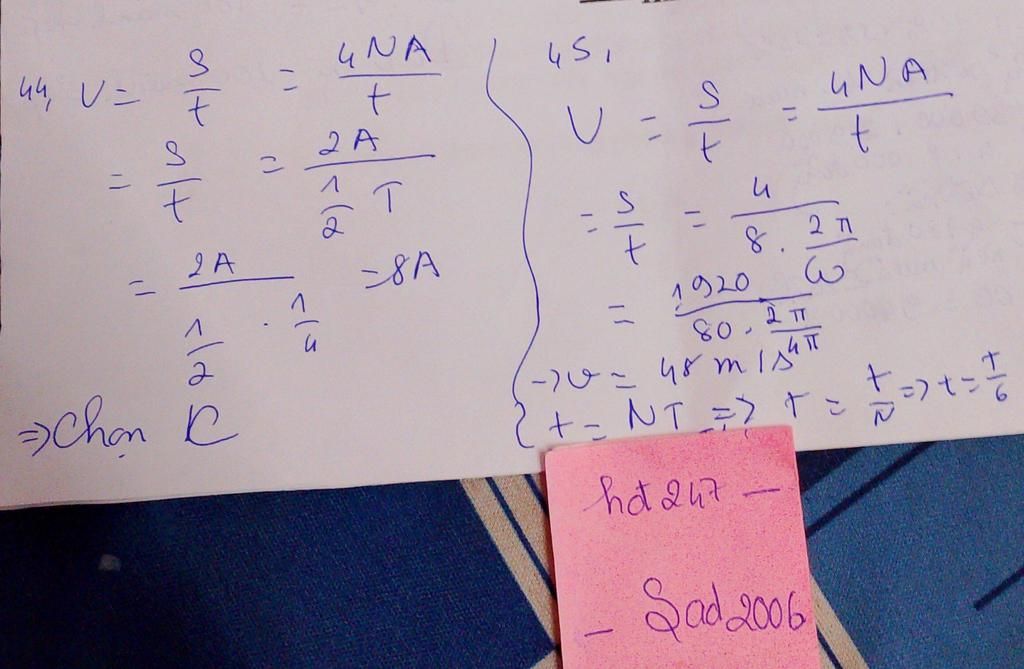 44, V = S/t = 4NA/t
= S/t = 2A/(1/2 T)
= 2A/(1/2 · 1/4) = 8A
=> Chọn C
45,
V = S/t = 4NA/t
= S/t = 4/(8 · 2π/ω)
= 1920/(80 · 2π/4π)
-> v = 48 m/s
t = NT => T = t/N => t = T/6
hdt247 —
— Sad2006